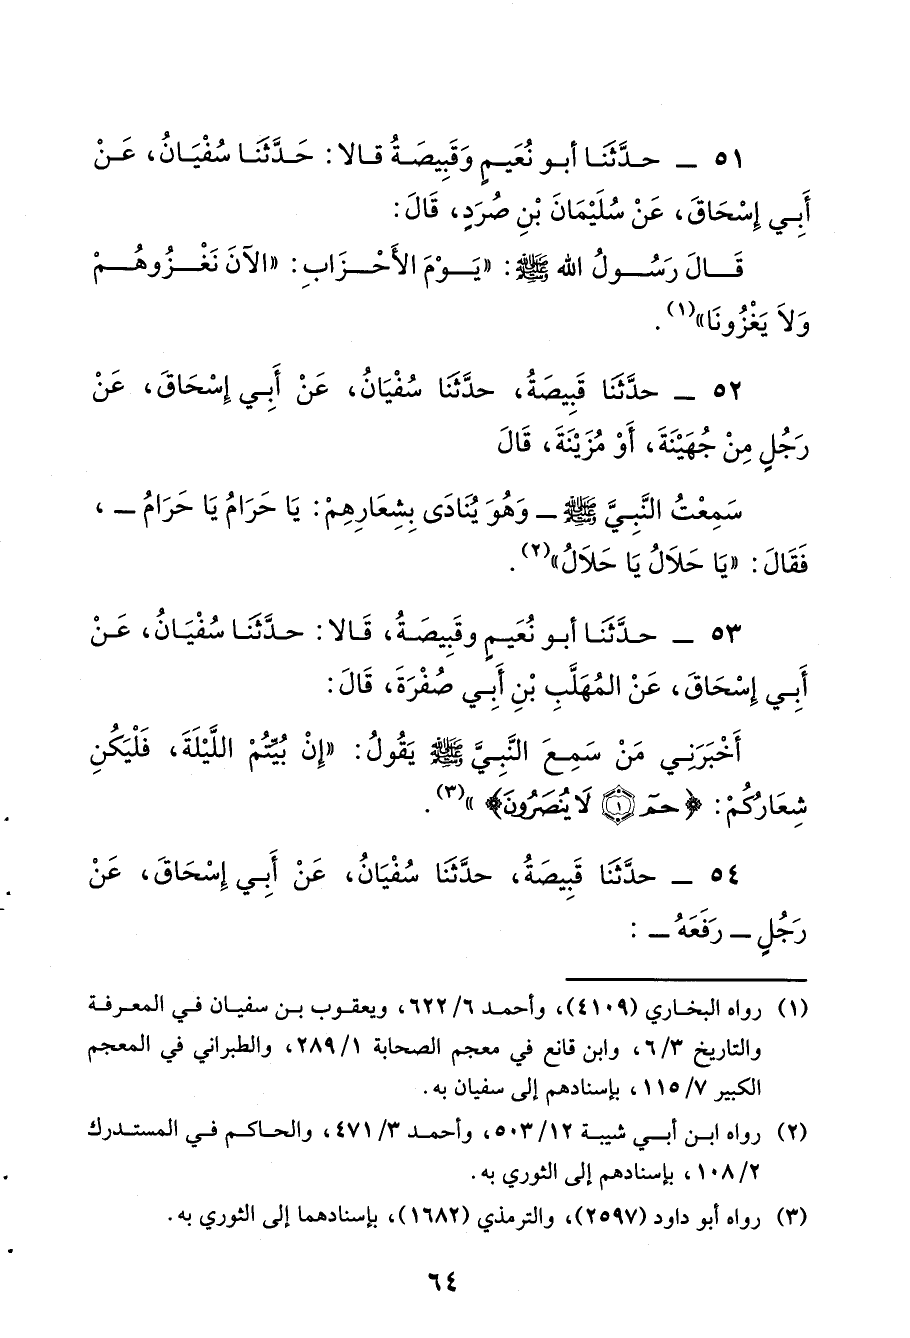 ٥١ ــ حدَّثَنَا أبو نُعَيمٍ وَقَبِيصَةُ قالا: حَدَّثَنَا سُفْيَانُ، عَنْ
أَبِي إِسْحَاقَ، عَنْ سُلَيْمَانَ بْنِ صُرَدٍ، قَالَ:
قَالَ رَسُولُ الله ﷺ: «يَوْمَ الأَحْزَابِ: «الآنَ نَغْزُوهُمْ
وَلاَ يَغْزُونَا»(١).
٥٢ ــ حدَّثَنَا قَبِيصَةُ، حدَّثَنَا سُفْيَانُ، عَنْ أَبِي إِسْحَاقَ، عَنْ
رَجُلٍ مِنْ جُهَيْنَةَ، أَوْ مُزَيْنَةَ، قَالَ
سَمِعْتُ النَّبِيَّ ﷺ ــ وَهُوَ يُنَادَى بِشِعَارِهِمْ: يَا حَرَامُ يَا حَرَامُ ــ،
فَقَالَ: «يَا حَلَالُ يَا حَلَالُ»(٢).
٥٣ ــ حدَّثَنَا أبو نُعَيمٍ وقَبِيصَةُ، قَالا: حدَّثَنَا سُفْيَانُ، عَنْ
أَبِي إِسْحَاقَ، عَنْ المُهَلَّبِ بْنِ أَبِي صُفْرَةَ، قَالَ:
أَخْبَرَنِي مَنْ سَمِعَ النَّبِيَّ ﷺ يَقُولُ: «إِنْ بُيِّتُمْ اللَّيْلَةَ، فَلْيَكُنِ
شِعَارُكُمْ: ﴿حمٓ ١ لَا يُنصَرُونَ﴾»(٣).
٥٤ ــ حدَّثَنَا قَبِيصَةُ، حدَّثَنَا سُفْيَانُ، عَنْ أَبِي إِسْحَاقَ، عَنْ
رَجُلٍ ــ رَفَعَهُ ــ :
(١) رواه البخاري (٤١٠٩)، وأحمد ٦/ ٦٢٢، ويعقوب بن سفيان في المعرفة
والتاريخ ٣/ ٦، وابن قانع في معجم الصحابة ١/ ٢٨٩، والطبراني في المعجم
الكبير ٧/ ١١٥، بإسنادهم إلى سفيان به.
(٢) رواه ابن أبي شيبة ١٢/ ٥٠٣، وأحمد ٣/ ٤٧١، والحاكم في المستدرك
٢/ ١٠٨، بإسنادهم إلى الثوري به.
(٣) رواه أبو داود (٢٥٩٧)، والترمذي (١٦٨٢)، بإسنادهما إلى الثوري به.
٦٤